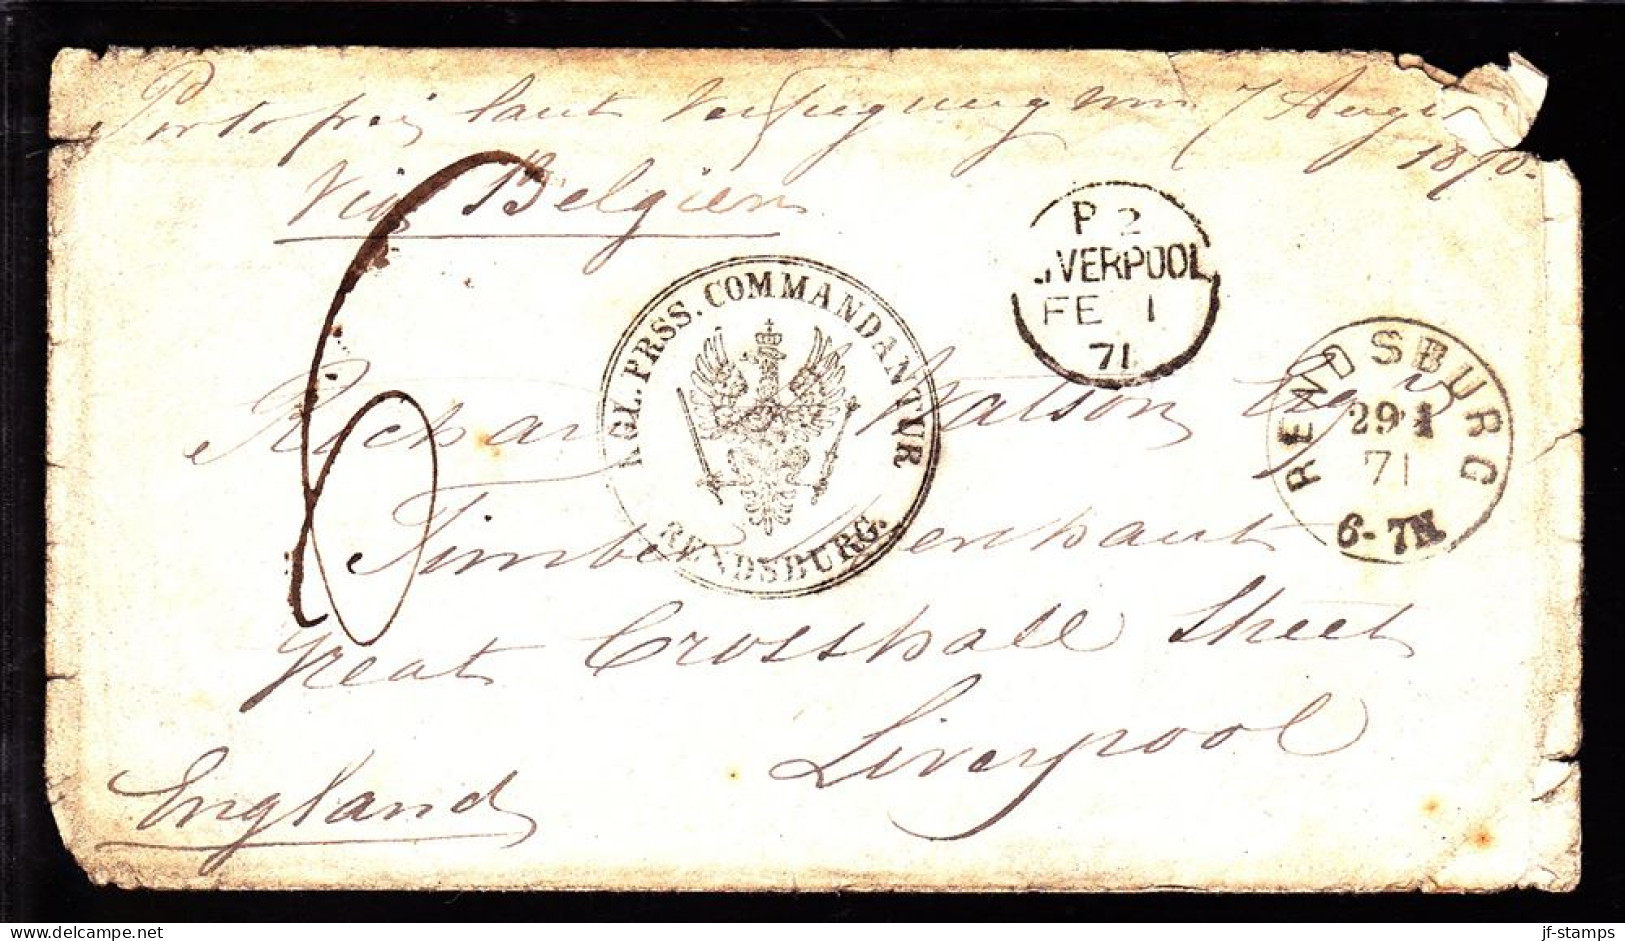 Portofrei laut Verfuegung vom 7 August
1870.
Via Belgien
P 2
LIVERPOOL
FE 1
71
KGL. PRSS. COMMANDANTUR
RENDSBURG.
RENDSBURG
29 1
71
6-7N
6
Richard Watson Esqr
Timber Merchant
Great Crosshall Street
Liverpool
England
delcampe.net
jf-stamps